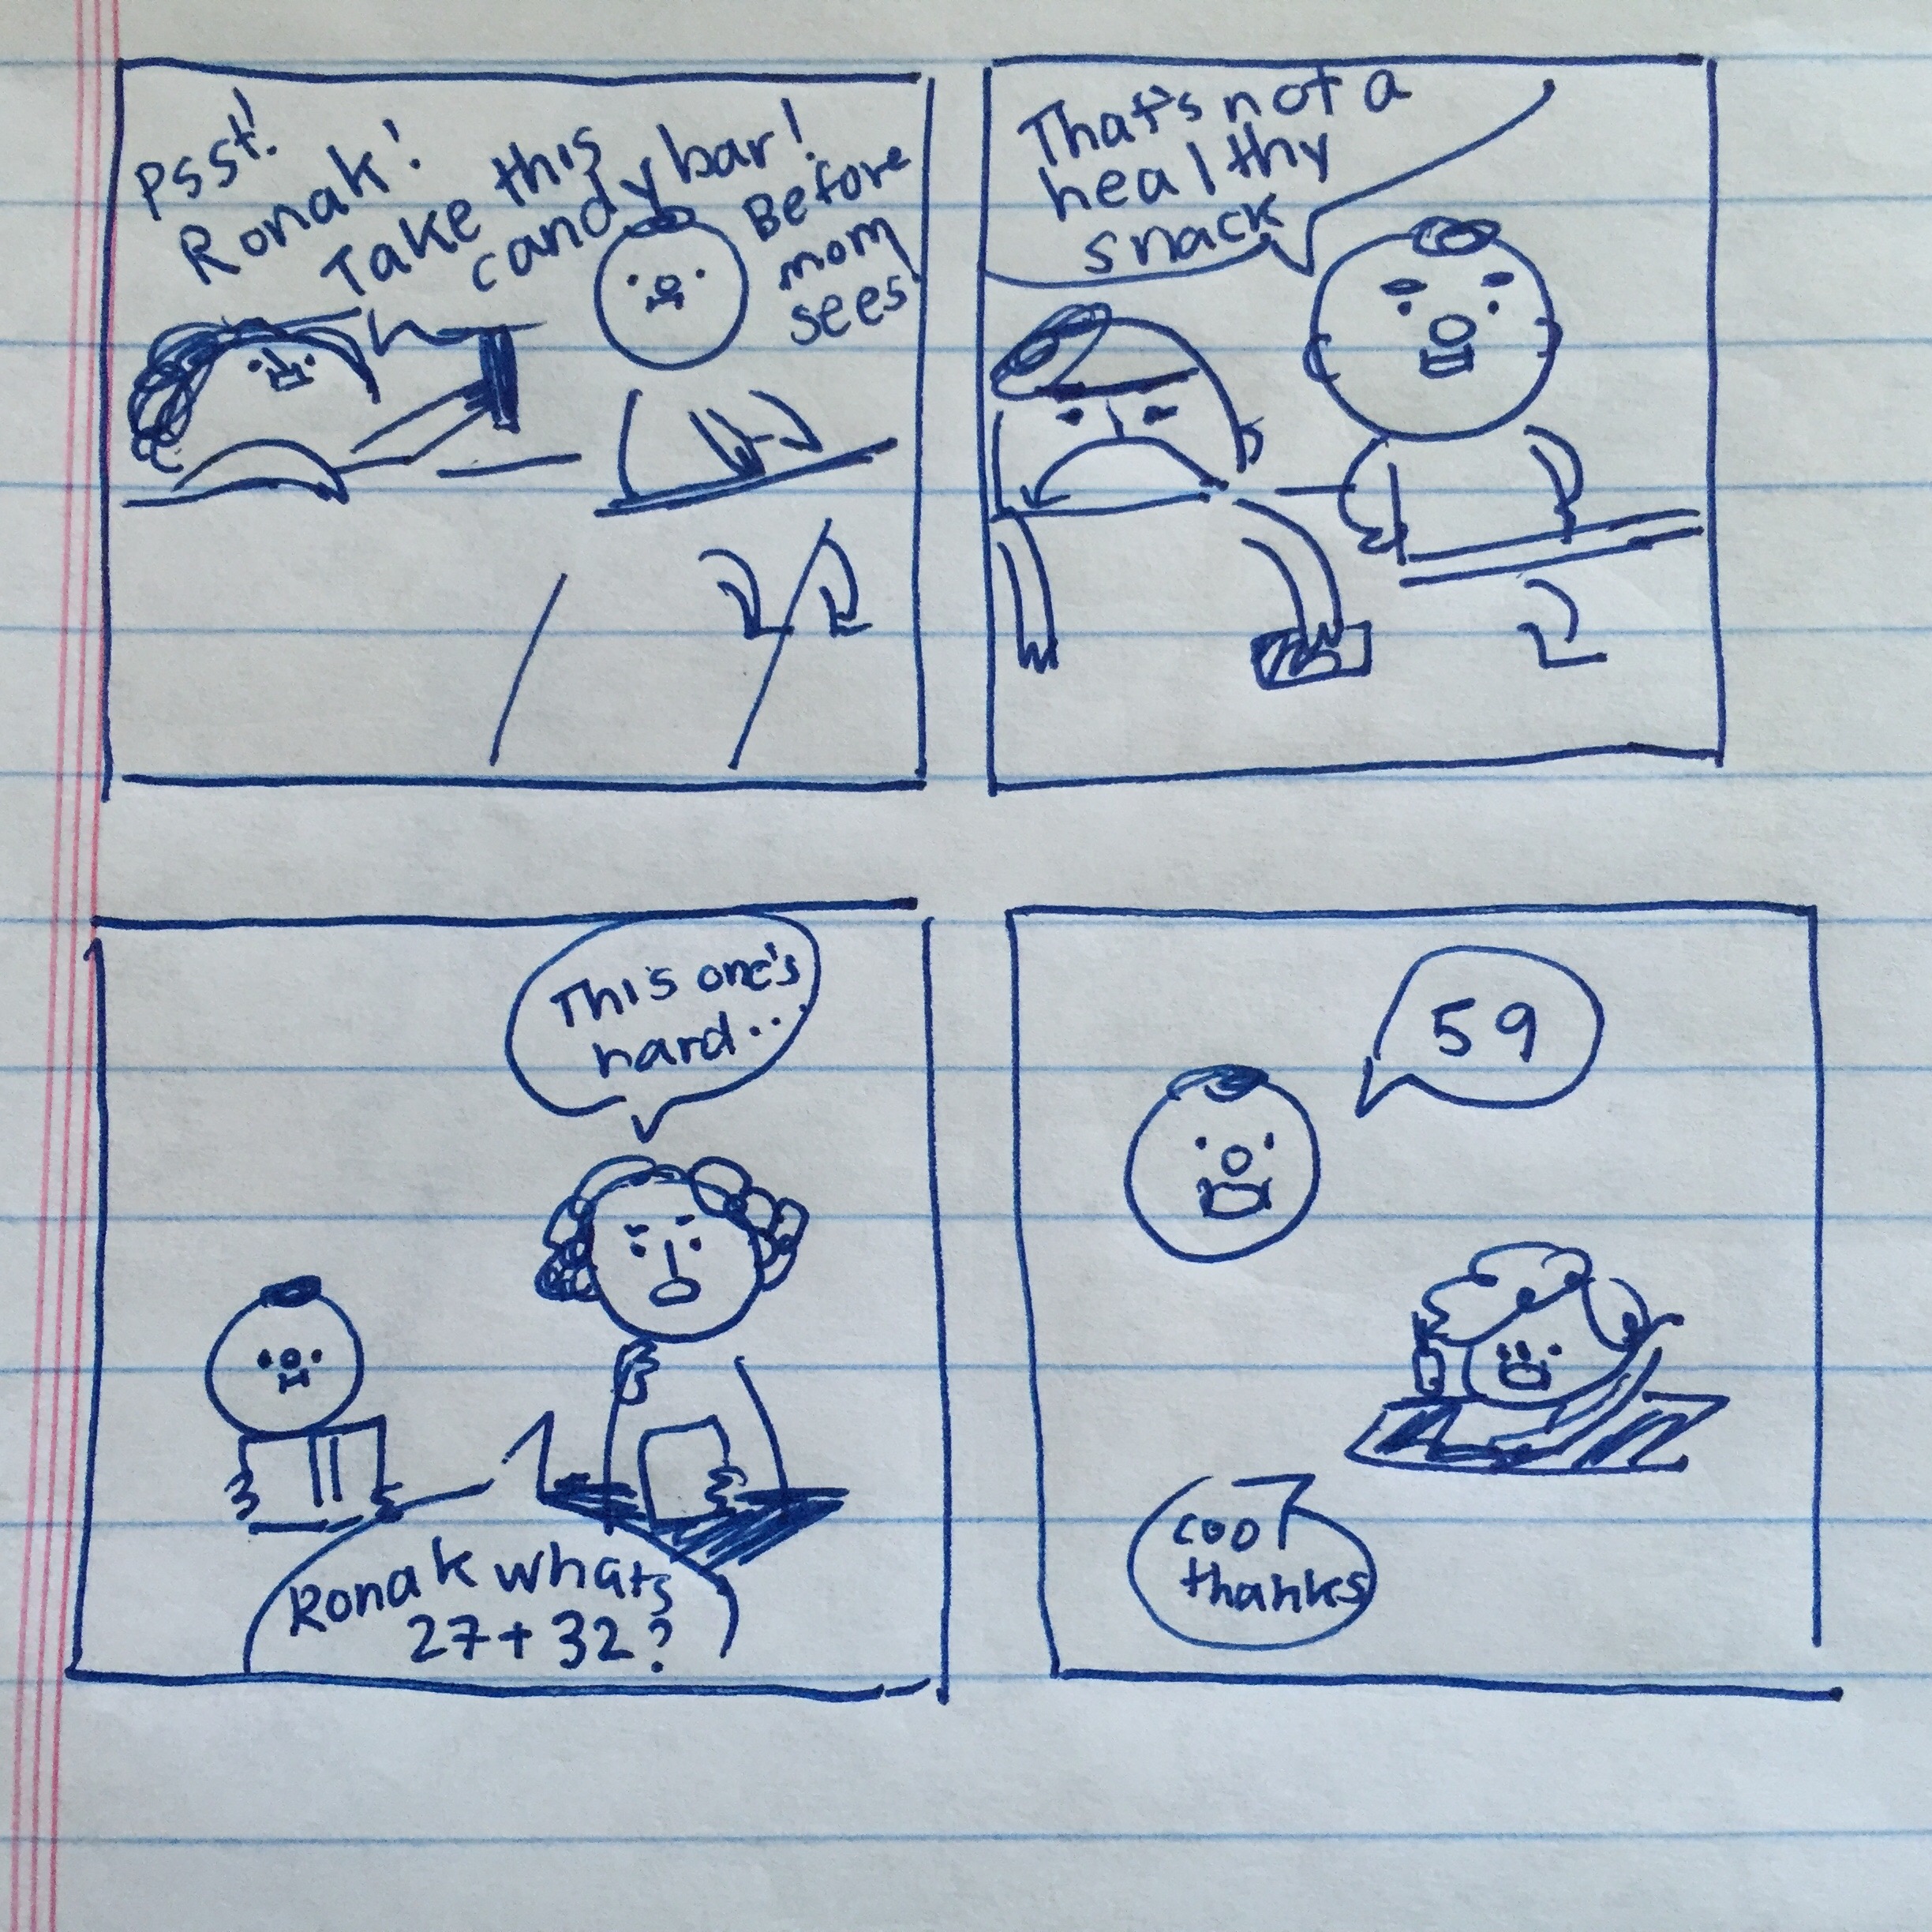 Psst!
Ronak!
Take this
candy bar!
Before
mom
sees
That's not a
healthy
snack
This one's
hard..
Ronak whats
27+32?
59
cool
thanks